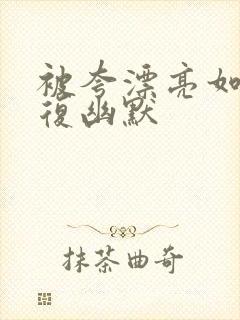 被夸漂亮如
復幽默
抹茶曲奇